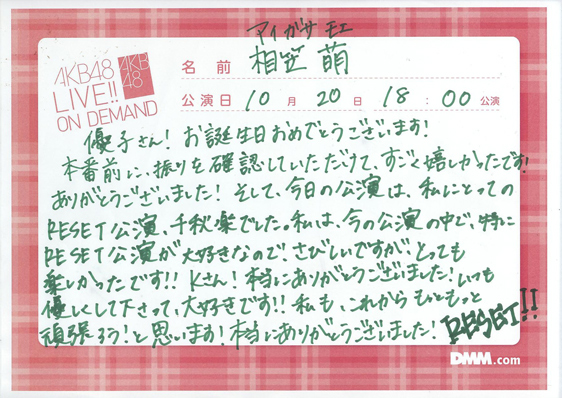 アイガサ モエ
AKB48
LIVE!!
ON DEMAND
AKB
48
名前 相笠 萌
公演日 10月20日 18:00公演
優子さん! お誕生日おめでとうございます!
本番前に、振りを確認していただけて、すごく嬉しかったです!
ありがとうございました! そして、今日の公演は、私にとっての
RESET公演、千秋楽でした。私は、今の公演の中で、特に
RESET公演が大好きなので、さびしいですが、とっても
楽しかったです!! Kさん! 本当にありがとうございました! いつも
優しくして下さって、大好きです!! 私も、これからもっともっと
頑張ろう! と思います! 本当にありがとうございました! RESET!!
DMM.com